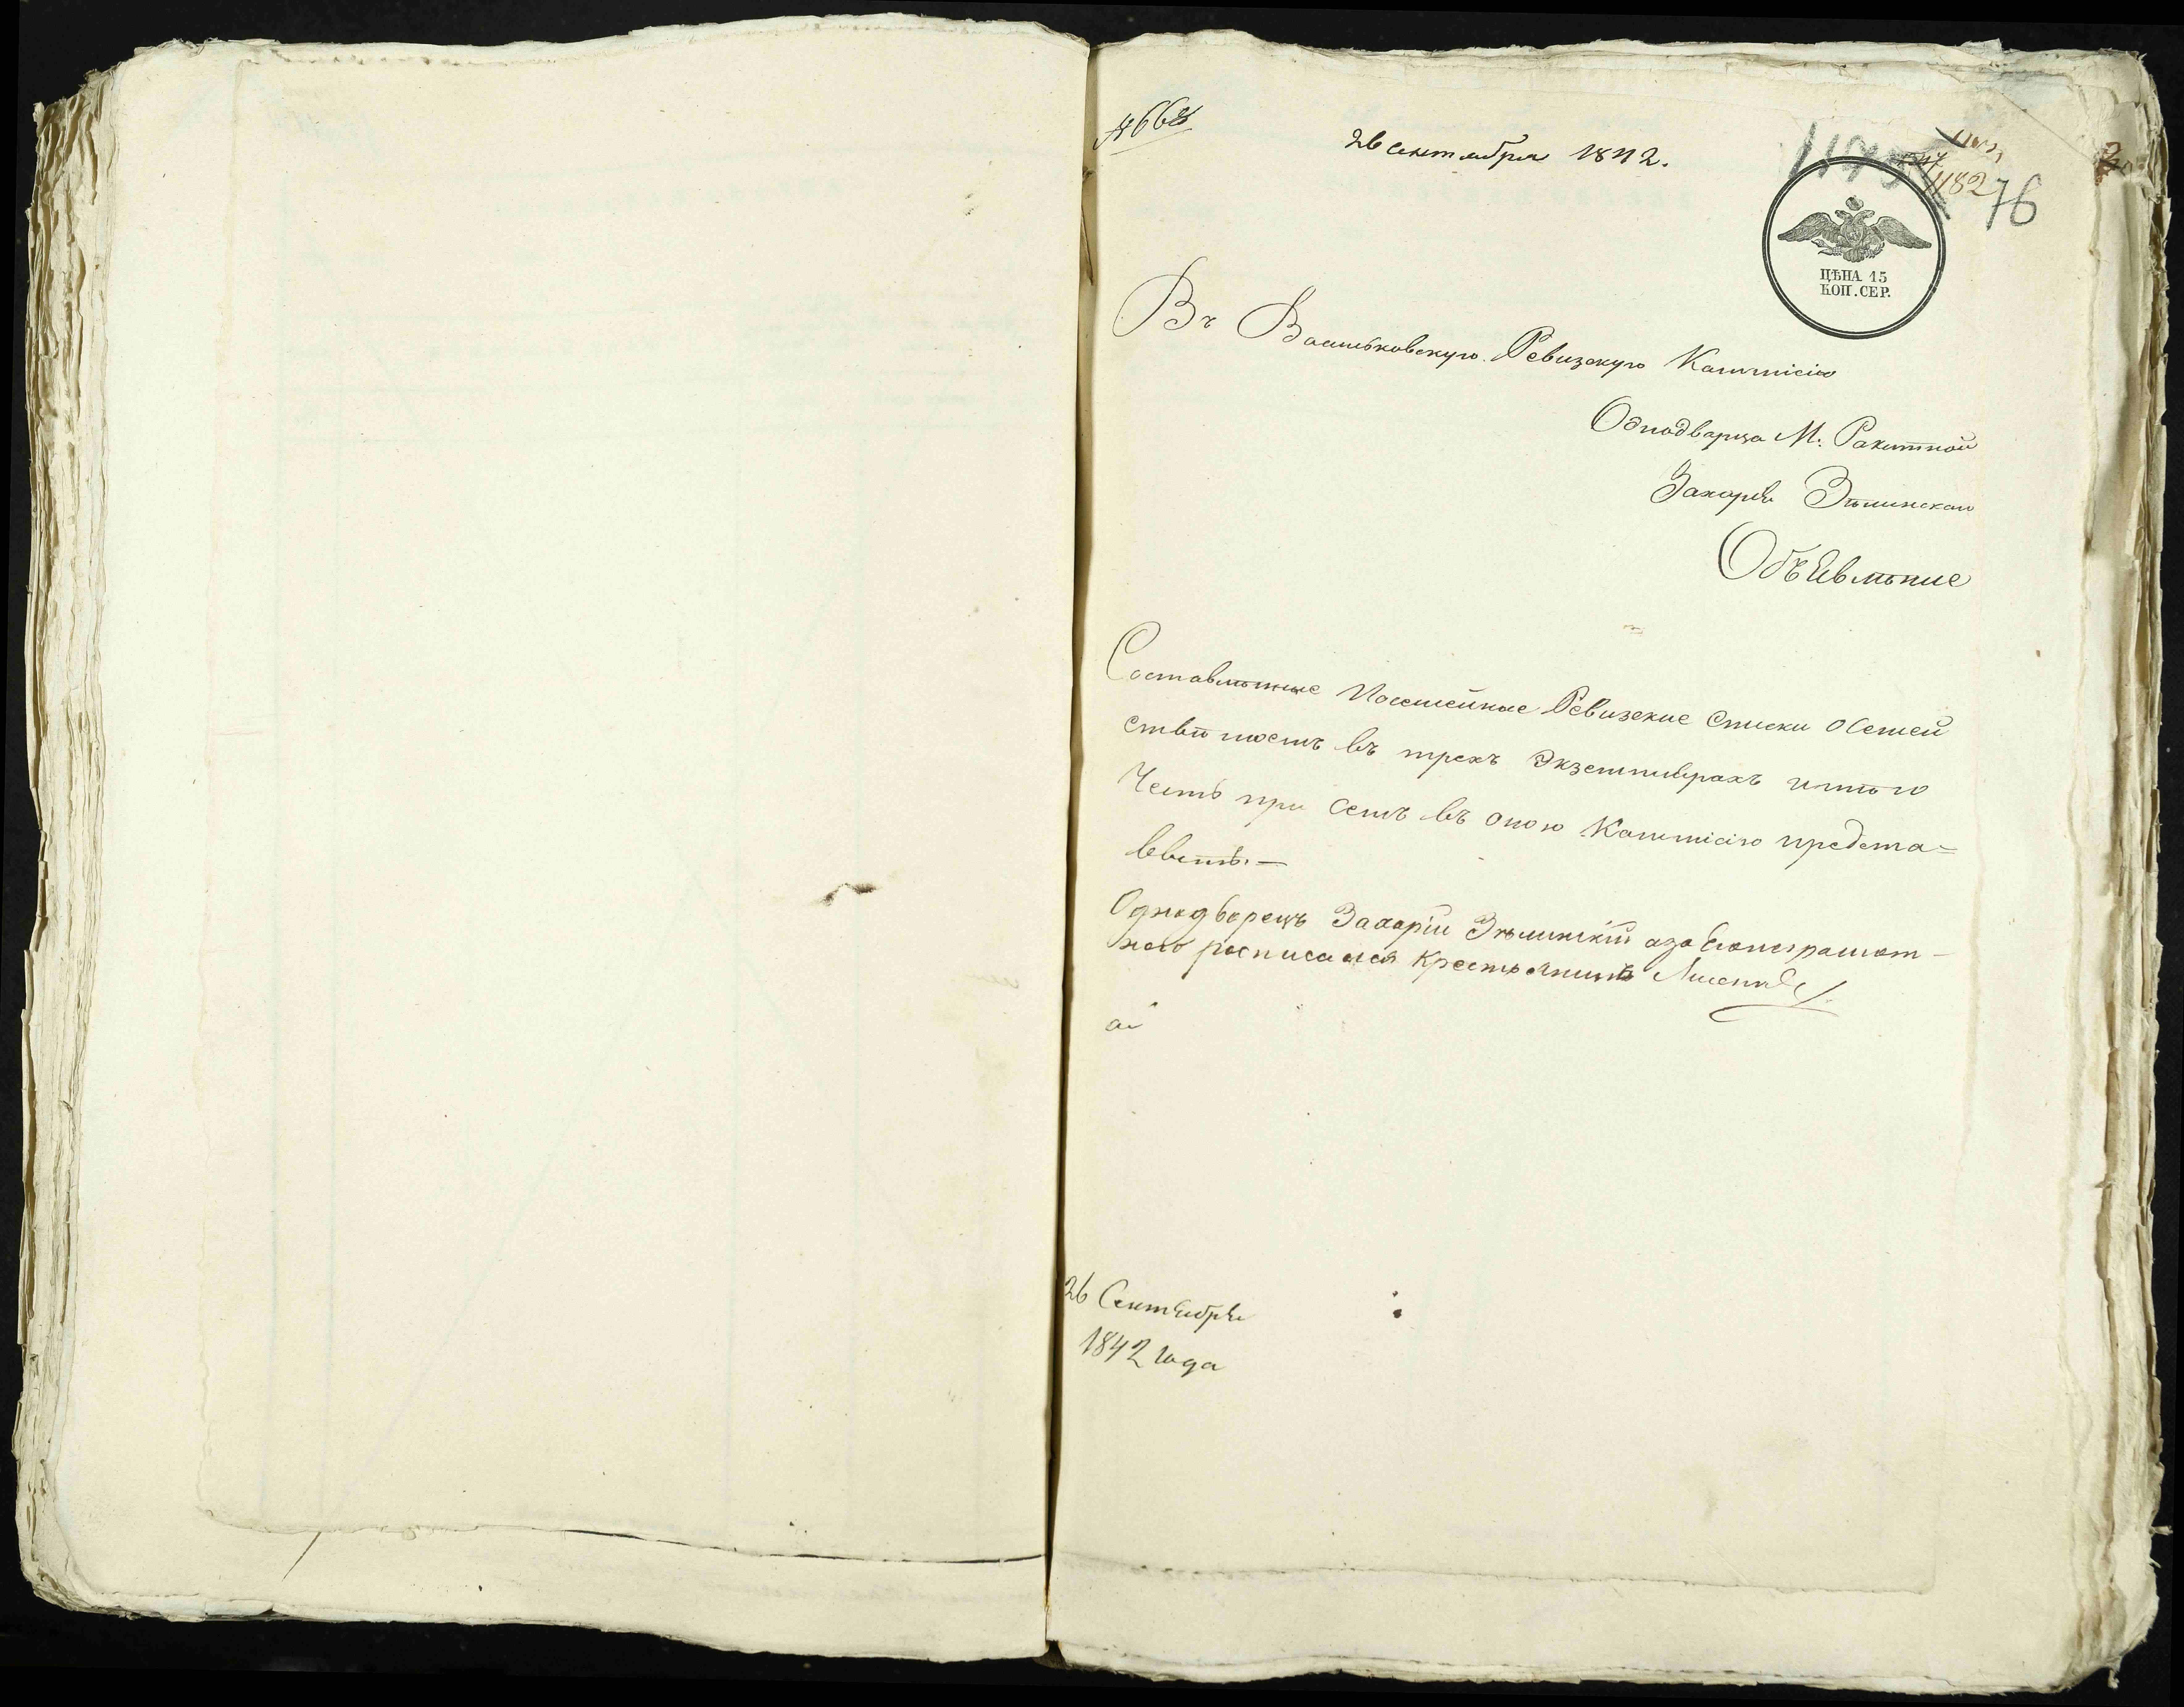 № 668
26 сентября 1842.
1182
76
ЦѢНА 15
КОП. СЕР.
Въ Васильковскую Ревизскую Коммисію
Однодворца М. Ракитной
Захарія
Объявление
Составленные Посемейные Ревизские списки о Семей
стве моемъ въ трехъ Экземплярахъ имею
Честь при семъ въ оною Коммисію предста=
вить. —
Однодворецъ Захарій а за Его неграмот-
наго росписался Крестьянинъ
26 Сентября
1842 года